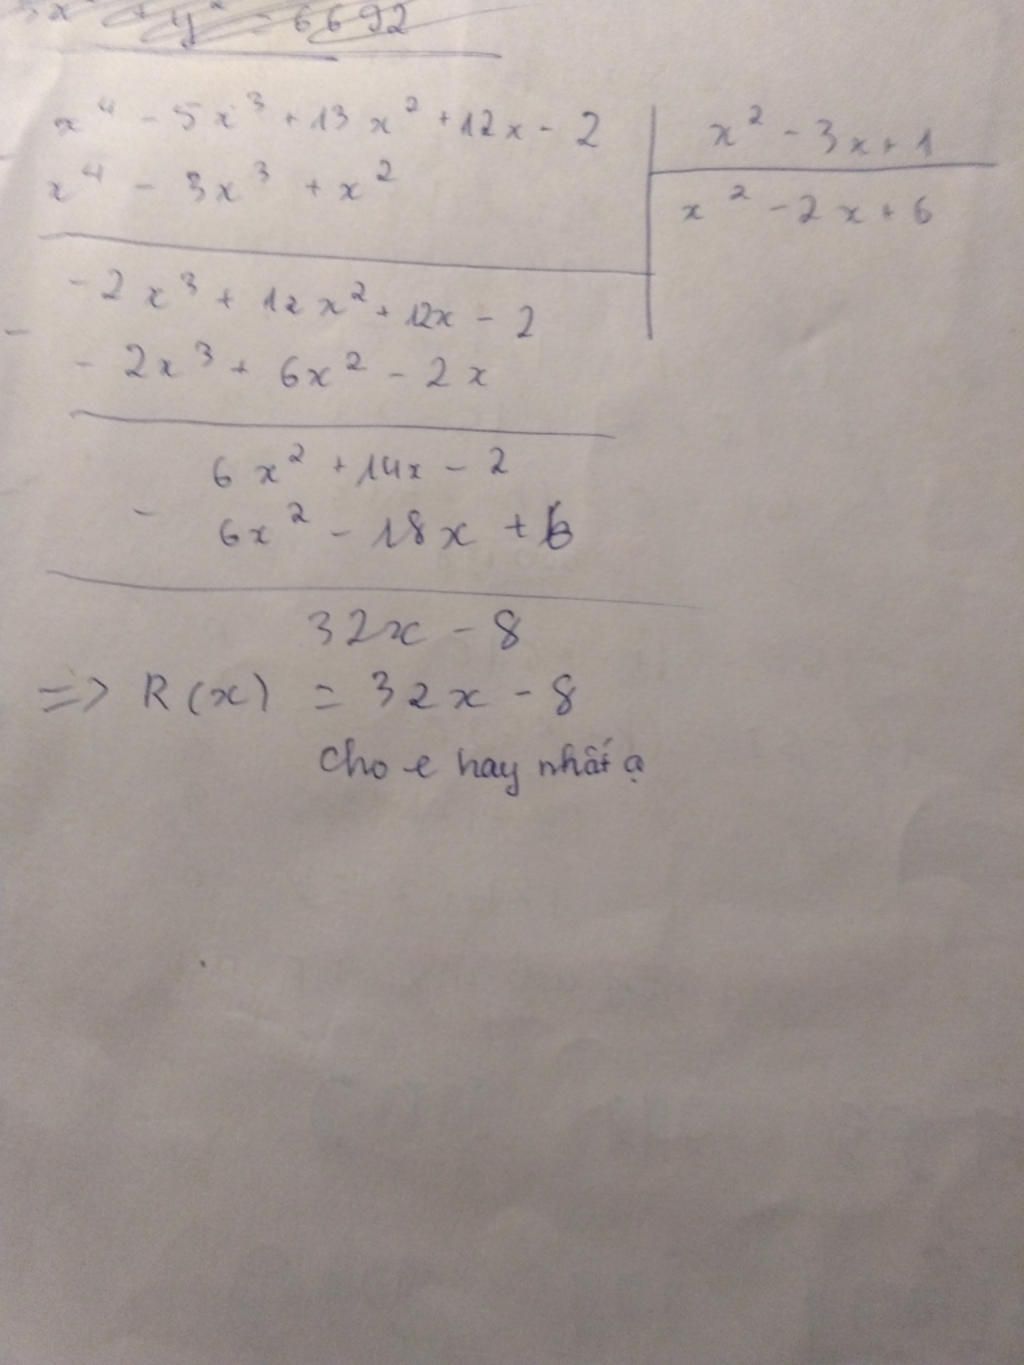 x² + y² = 6692
x⁴ - 5x³ + 13x² + 12x - 2 | x² - 3x + 1
- x⁴ - 3x³ + x² | x² - 2x + 6
-2x³ + 12x² + 12x - 2
- - 2x³ + 6x² - 2x
6x² + 14x - 2
- 6x² - 18x + 6
32x - 8
=> R(x) = 32x - 8
Cho e hay nhất ạ